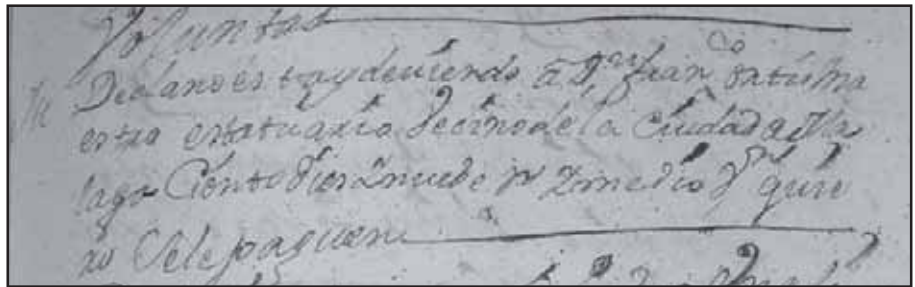 Voluntad
Declaro estoy deviendo a Dn Franco Ortis Ma
estro estatuario Vecino de la Ciudad de Ma
laga Ciento Dies Znuebe ps Zmedio qn quie
ro Se le paguen